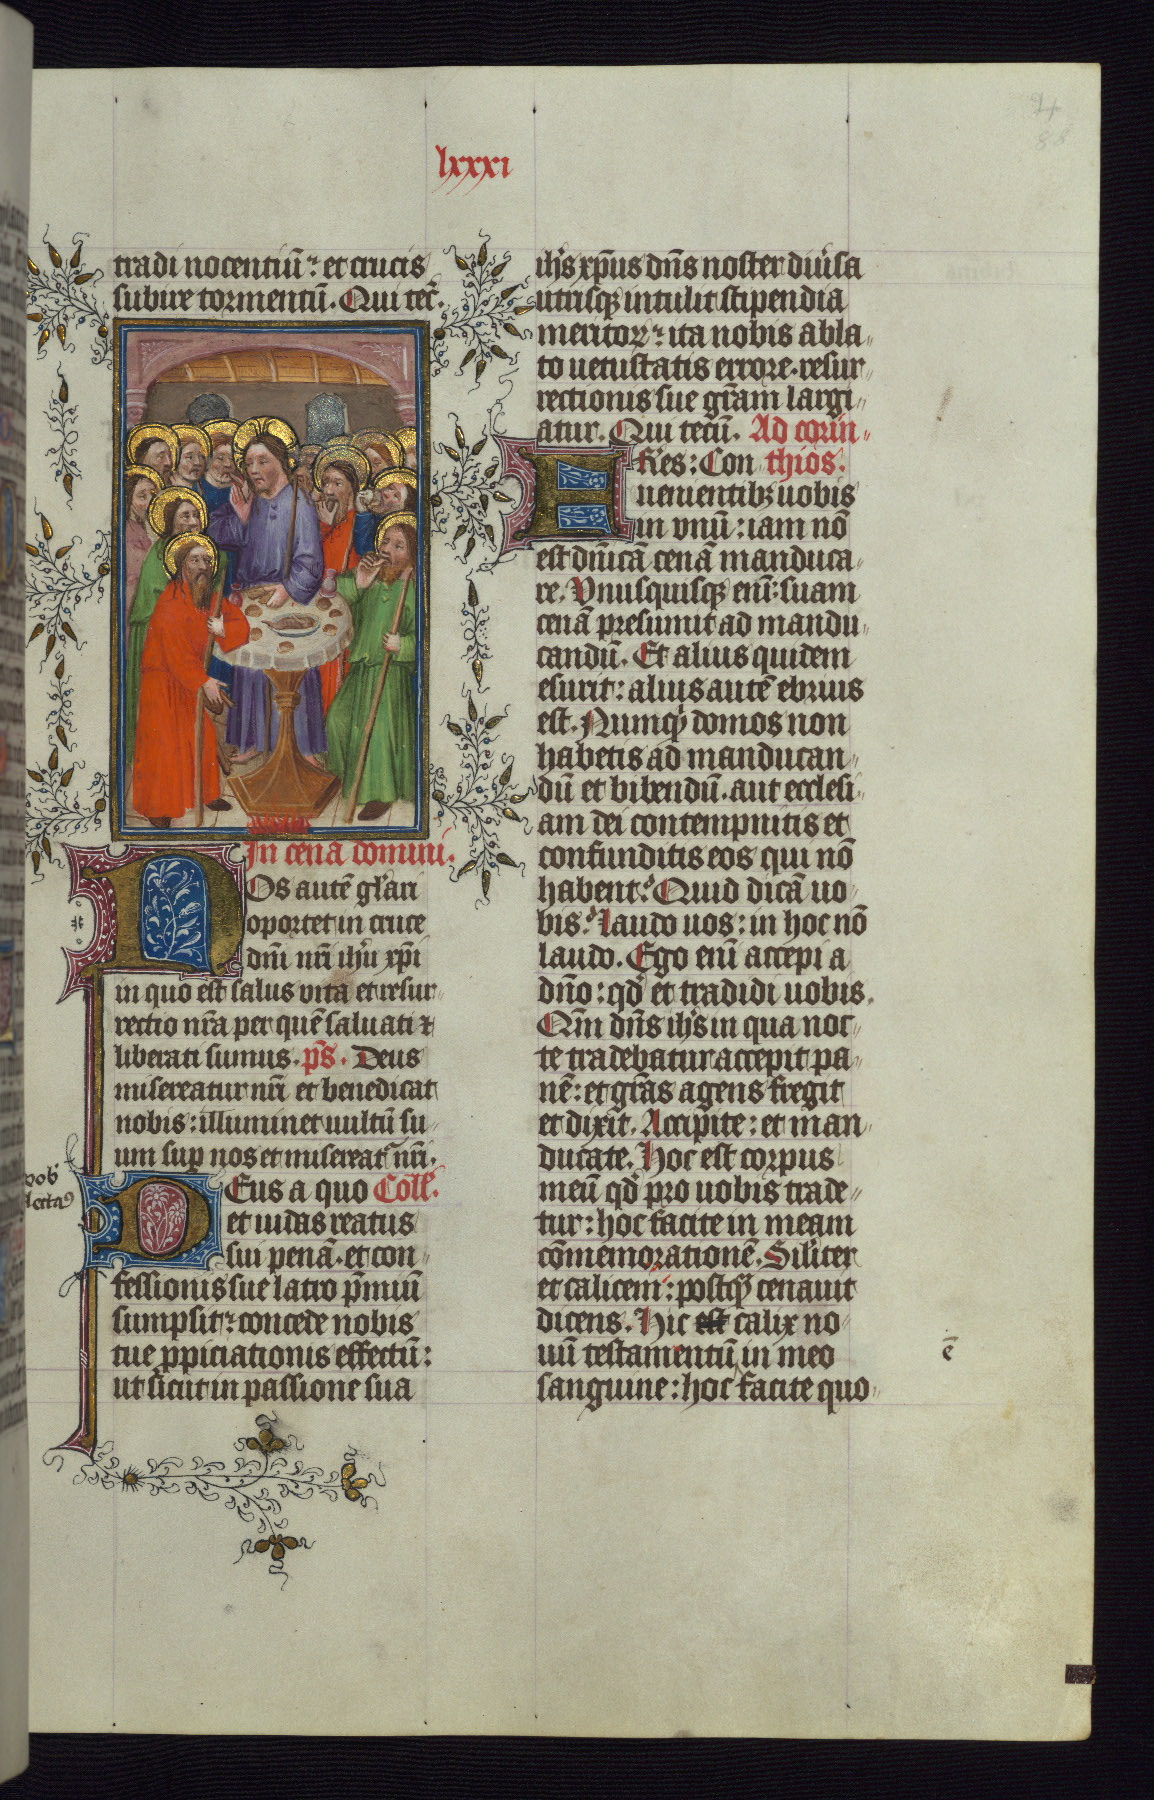 lxxxi
tradi nocentiū : et crucis
subire tormentū . Qui tec̄ .
In cena domini .
Nos autē gl'ari
oportet in cruce
dn̄i nr̄i ih'u xp̄i
in quo est salus vita et resur
rectio nr̄a per quē saluati ⁊
liberati sumus . ps̄ . Deus
misereatur nr̄i et benedicat
nobis : illuminet uultū su
um sup nos et misereat² nr̄i .
Deus a quo Coll̄ .
et iudas reatus
sui penā . et con
fessionis sue latro p̄miū
sumpsit : concede nobis
tue ppiciationis effectū :
ut sicut in passione sua
ih's xp̄us dn̄s noster diu'sa
utrisq₃ intulit stipendia
meritoꝝ : ita nobis abla
to uetustatis errore . resur
rectionis sue gr̄am largi
atur . Qui tecū . Ad corin
thios .
Fr̄es : Con
uenientib₃ uobis
in vnū : iam nō
est dn̄icā cenā manduca
re . Vnusquisq₃ enī suam
cenā presumit ad mandu
candū . Et alius quidem
esurit : alius autē ebrius
est . Numq' domos non
habetis ad manducan
dū et bibendū . aut ecclesi
am dei contempnitis et
confunditis eos qui nō
habent : Quid dicā uo
bis : laudo uos : in hoc nō
laudo . Ego enī accepi a
dn̄o : qd̄ et tradidi uobis .
Qm̄ dn̄s ih's in qua noc
te tradebatur accepit pa
nē : et gr̄as agens fregit
et dixit . Accipite : et man
ducate . Hoc est corpus
meū qd̄ pro uobis trade
tur : hoc facite in meam
cōmemorationē . Sil'iter
et calicem : postq₃ cenauit
dicens . Hic est calix no
uū testamentū in meo
ē
sanguine : hoc facite quo